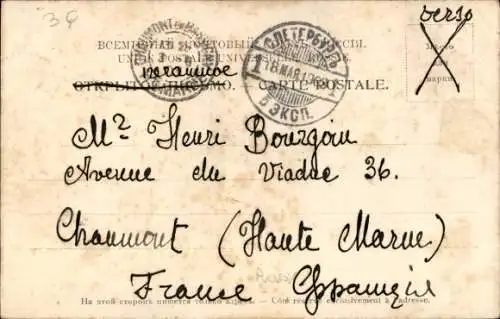 verso
ВСЕМІРНЫЙ ПОЧТОВЫЙ СОЮЗЪ. РОССІЯ.
UNION POSTALE UNIVERSELLE. RUSSIE.
С.ПЕТЕРБУРГЪ
18 МАР
5 ЭКСП.
ОТКРЫТОЕ ПИСЬМО. CARTE POSTALE.
Мѣсто
для
марки.
Mr Henri Bourgoin
Avenue du Viaduc 36.
Chaumont (Haute Marne)
France Франція
На этой сторонѣ пишется только адресъ. — Côté réservé exclusivement à l'adresse.